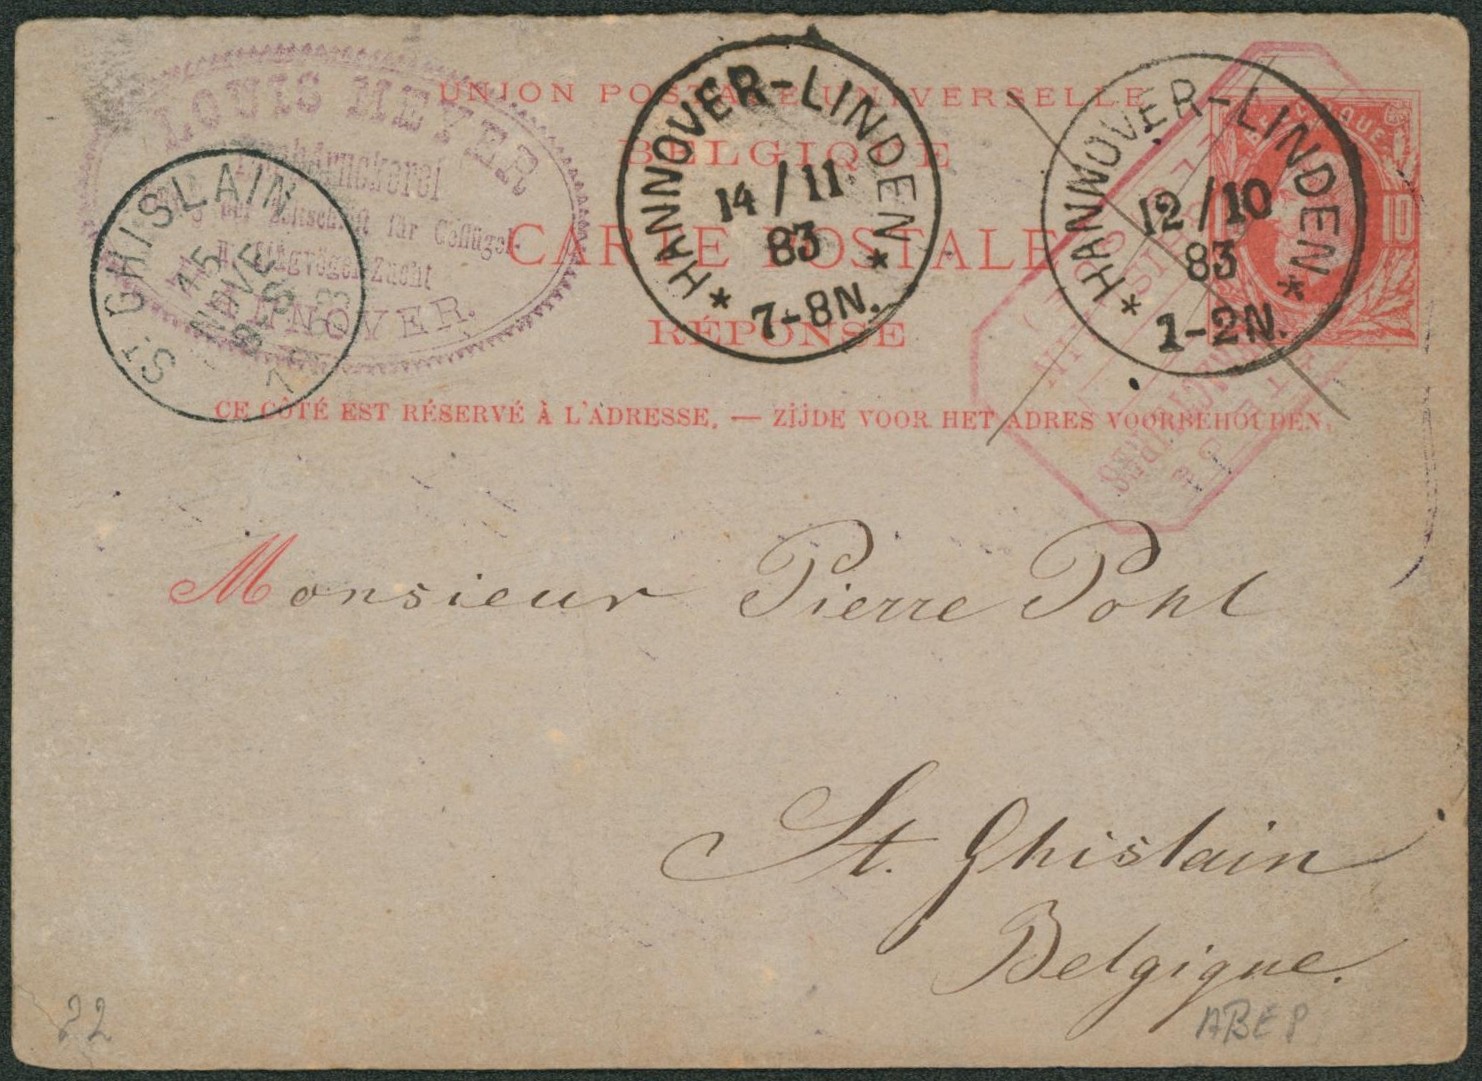 UNION POSTALE UNIVERSELLE
BELGIQUE
CARTE POSTALE
RÉPONSE
CE CÔTÉ EST RÉSERVÉ À L'ADRESSE. — ZIJDE VOOR HET ADRES VOORBEHOUDEN.
BELGIQUE
10
LOUIS MEYER
Buchdruckerei
der Zeitschrift für Geflügel-
Singvögel-Zucht
HANNOVER.
ST GHISLAIN
15
NOVE
1883
7
HANNOVER-LINDEN
14/11
83
7-8N.
* *
HANNOVER-LINDEN
12/10
83
1-2N.
* *
Monsieur Pierre Pohl
St. Ghislain
Belgique.
22
ABEP